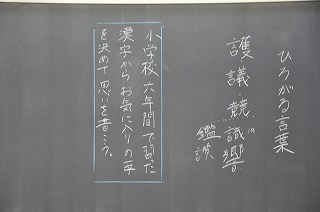 ひろがる言葉
護議競識響
鑑誠
小学校六年間で習った
漢字からお気に入りの一字
を決めて思いを書こう。